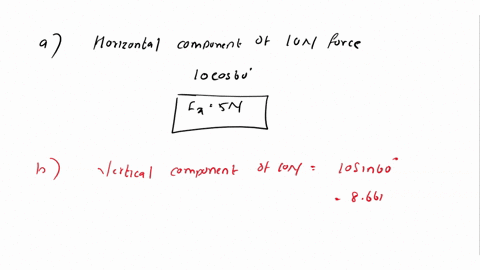 a) Horizontal component of 10N force
10cos60°
Fx = 5N
b) Vertical component of 10N = 10sin60°
= 8.661